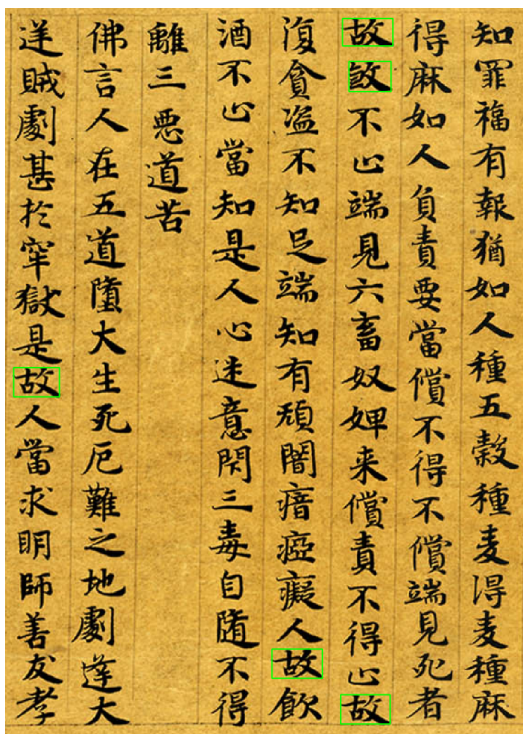 知罪福有報猶如人種五穀種麦得麦種麻
得麻如人負責要當償不得不償端見死者
故敓不止端見六畜奴婢来償責不得止故
復貪盗不知足端知有頑闇瘖瘂癡人故飲
酒不止當知是人心迷意閇三毒自随不得
離三悪道苦
佛言人在五道墮大生死厄難之地劇逢大
逆賊劇甚扵窂獄是故人當求明師善友孝